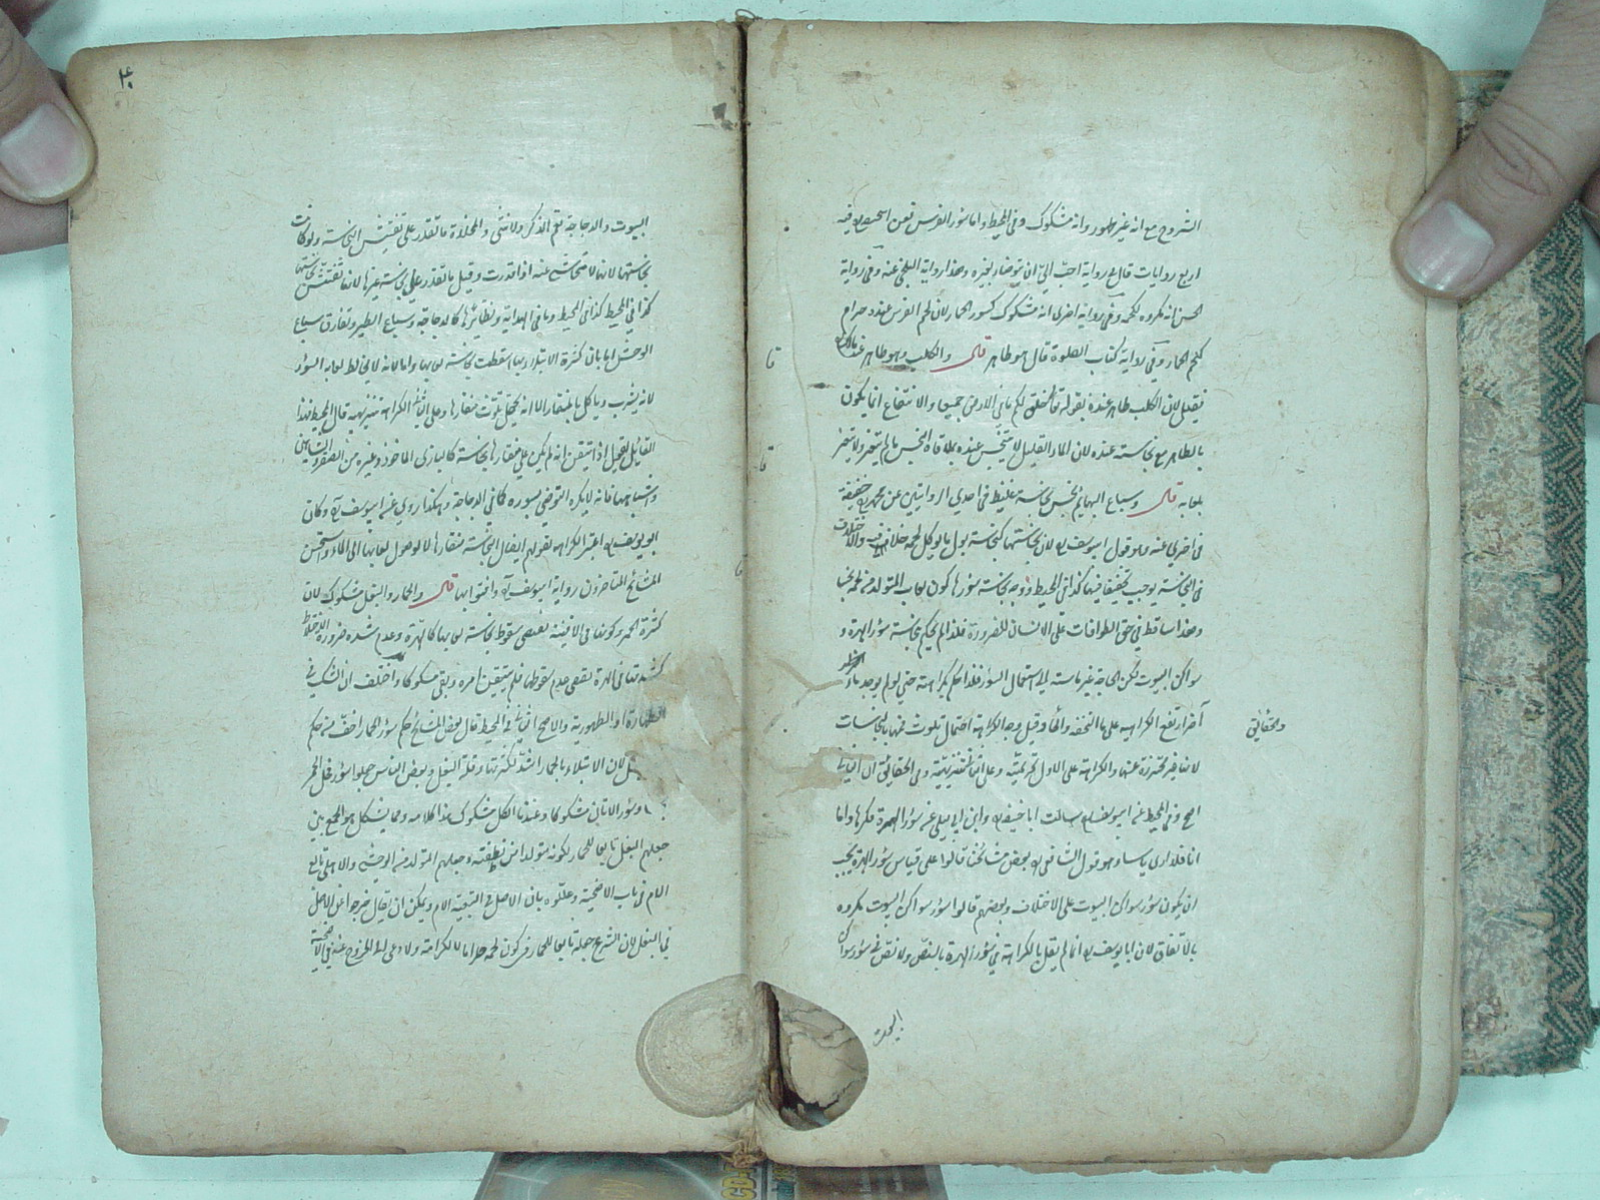 الشروح مع انه غير طهور وانه مشكوك وفي المحيط واما سؤر الفرس فعن ابيحنيفة فيه
اربع روايات قال في رواية احب الي ان يتوضاء بغيره وهذا رواية البلخي عنه وفي رواية
الحسن انه مكروه كلحمه وفي رواية اخرى انه مشكوك كسور الحمار لان لحم الفرس عنده حرام
كلحم الحمار وفي رواية كتاب الصلوة قال هو طاهر قال والكلب وهو طاهر عند مالك
فقيل لان الكلب طاهر عنده بقوله تعالى خلق لكم ما في الارض جميعا والانتفاع انما يكون
بالطاهر مع نجاسته عنده لان الماء القليل لا يتنجس عنده بملاقاة النجس ما لم يتغير ولا يتغير
بلعابه قال وسباع البهايم نجس نجاسة غليظة في احدي الروايتين عن ابي حنيفة
في اخري عنه وهو قول ابيوسف لان نجاستها كنجاسة بول ما يوكل لحمه والاختلاف
في النجاسة يوجب تخفيفا فيها كذا في المحيط ووجه نجاسة سورها كون لعاب المتولد من لحمه نجسا
وهذا ساقط في حق الطوافات على الانسان للضرورة فلذا لم يحكم بنجاسة سؤر الهرة و
سواكن البيوت لكن الحاجة غير ماسة الى استعمال السؤر فلذا حكم بكراهته حتى لو لم يوجد ماء
آخر ارتفع الكراهية على ما في التحفه وقيل وجه الكراهة احتمال تلوث فمها بالنجاسات
والحقائق
لانها غير محترزة عنها والكراهة على الاول تحريمية وعلى الثاني تنزيهية وفي الحقائق ان الثاني
اصح وفي المحيط عن ابيوسف سالت ابا حنيفة وابن ابي ليلى عن سؤر الهرة فكرها واما
انا فلا ارى باسا وهو قول الشافعي بعض مشائخنا قالوا على قياس سؤر الهرة يجب
ان يكون سؤر سواكن البيوت على الاختلاف وبعضهم قالوا سؤر سواكن البيوت مكروه
بالاتفاق لان ابا يوسف انما لم يقل بالكراهة في سؤر الهرة بالنص ولا نص في سؤر سواكن
البيوت
٤٠
البيوت والدجاجة تعم الذكر والانثى والمخلاة ما تقدر على تفتيش النجاسة ولو كانت
نجاستها لانها لا تتحاشى عنه اذا قدرت وقيل ما تقدر على نجاسة غيرها لانها تفتش نجاستها
كذا في المحيط كذا في المحيط وما في الهداية ونظائرها كالدجاجة وسباع الطير وتفارق سباع
الوحش اما بان كثرة الابتلاء بها اسقطت نجاسة لعابها واما لانه لا يخالط لعابه السؤر
لانه يشرب وياكل بالمنقار الا انه يحتمل تلوث منقارها وعلى الثاني الكراهة تنزيهية قال المحيط فهذا
القائل يقول اذا تيقن انه لم يكن على منقارها نجاسة كالبازى الماخوذ وغيره من الصقر والشاهين
واشباههما فانه لا يكره التوضي بسوره كما في الدجاجة وهكذا روي عن ابيوسف وكان
ابو يوسف اعتبر الكراهة بقولهم ايصال النجاسة منقارها لا لوصول لعابها الى الماء واستحسن
المشائخ المتاخرون رواية ابيوسف وافتوا بها قال والحمار والبغل مشكوك لان
كثرة الحمر وكونها في الافنية يقتضي سقوط نجاسة لعابها كالهرة وعدم شدة ضرورة الاختلاط
كشدتها في الهرة يقضي عدم سقوطها فلم يتيقن امره وبقي مشكوكا واختلف ان الشك في
الطهارة او الطهورية والاصح الثاني في المحيط قال بعض المشائخ حكم سؤر الحمار اخف من حكم
لان الابتلاء بالحمار اشد لكثرتها وقلة البغل وبعض الناس جعلوا سؤر فحل الحمر
وسؤر الاتان مشكوكا وعندنا الكل مشكوك هذا كلامه ومما يشكل هو الجمع بين
جعلهم البغل تابعا للحمار لكونه متولدا من نطفته وجعلهم المتولد من الوحشي والاهلي تابع
الام في باب الاضحية وعللوه بان الاصل في التبعية الام ويمكن ان يقال خرجوا عن الاصل
في البغل لان الشرع جعله تابعا للحمار في كون لحمه حراما لا لكرامته ولا داعي الى الخروج عنه في الاضحية